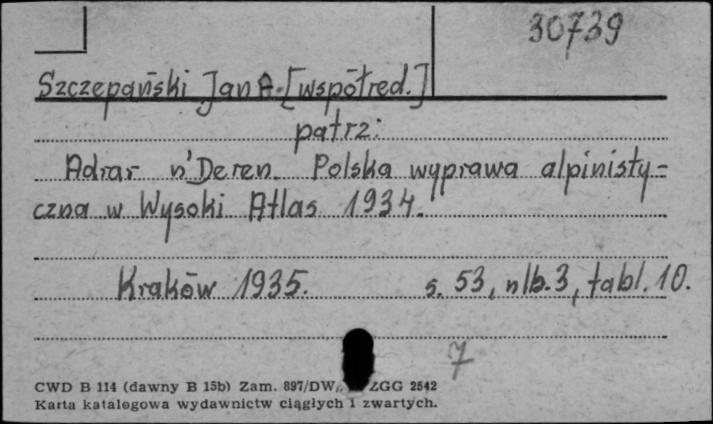 30739
Szczepański Jan A. [współred.]
patrz:
Adrar n'Deren. Polska wyprawa alpinisty=
czna w Wysoki Atlas 1934.
Kraków 1935. s. 53, nlb. 3, tabl. 10.
7
CWD B 114 (dawny B 15b) Zam. 897/DW ZGG 2542
Karta katalogowa wydawnictw ciągłych i zwartych.